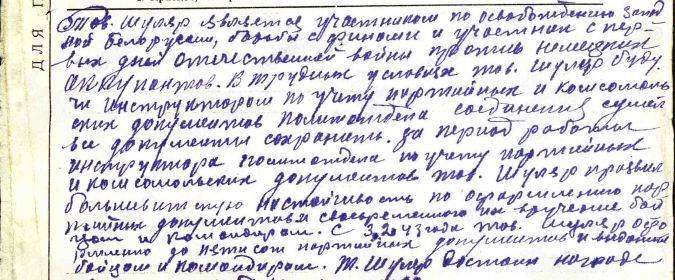 Тов. Шуляр является участником по освобождению запад
ной Белоруссии, борьбы с финами и участник с пер-
вых дней отечественной войны против немецких
оккупантов. В трудных условиях тов. Шуляр буду
чи инструктором по учету партийных и комсомоль
ских документов политотдела соединения сумел
все документы сохранить. За период работы
инструктора политотдела по учету партийных
и комсомольских документов тов. Шуляр проявил
большевистскую настойчивость по оформлению пар
тийных документов своевременного их вручение бой
цам и командирам. С 3.2.43 года тов. Шуляр офо
рмленно до пятисот партийных документов и выданы
бойцам и командирам. Т. Шуляр достоин награде
ДЛЯ П